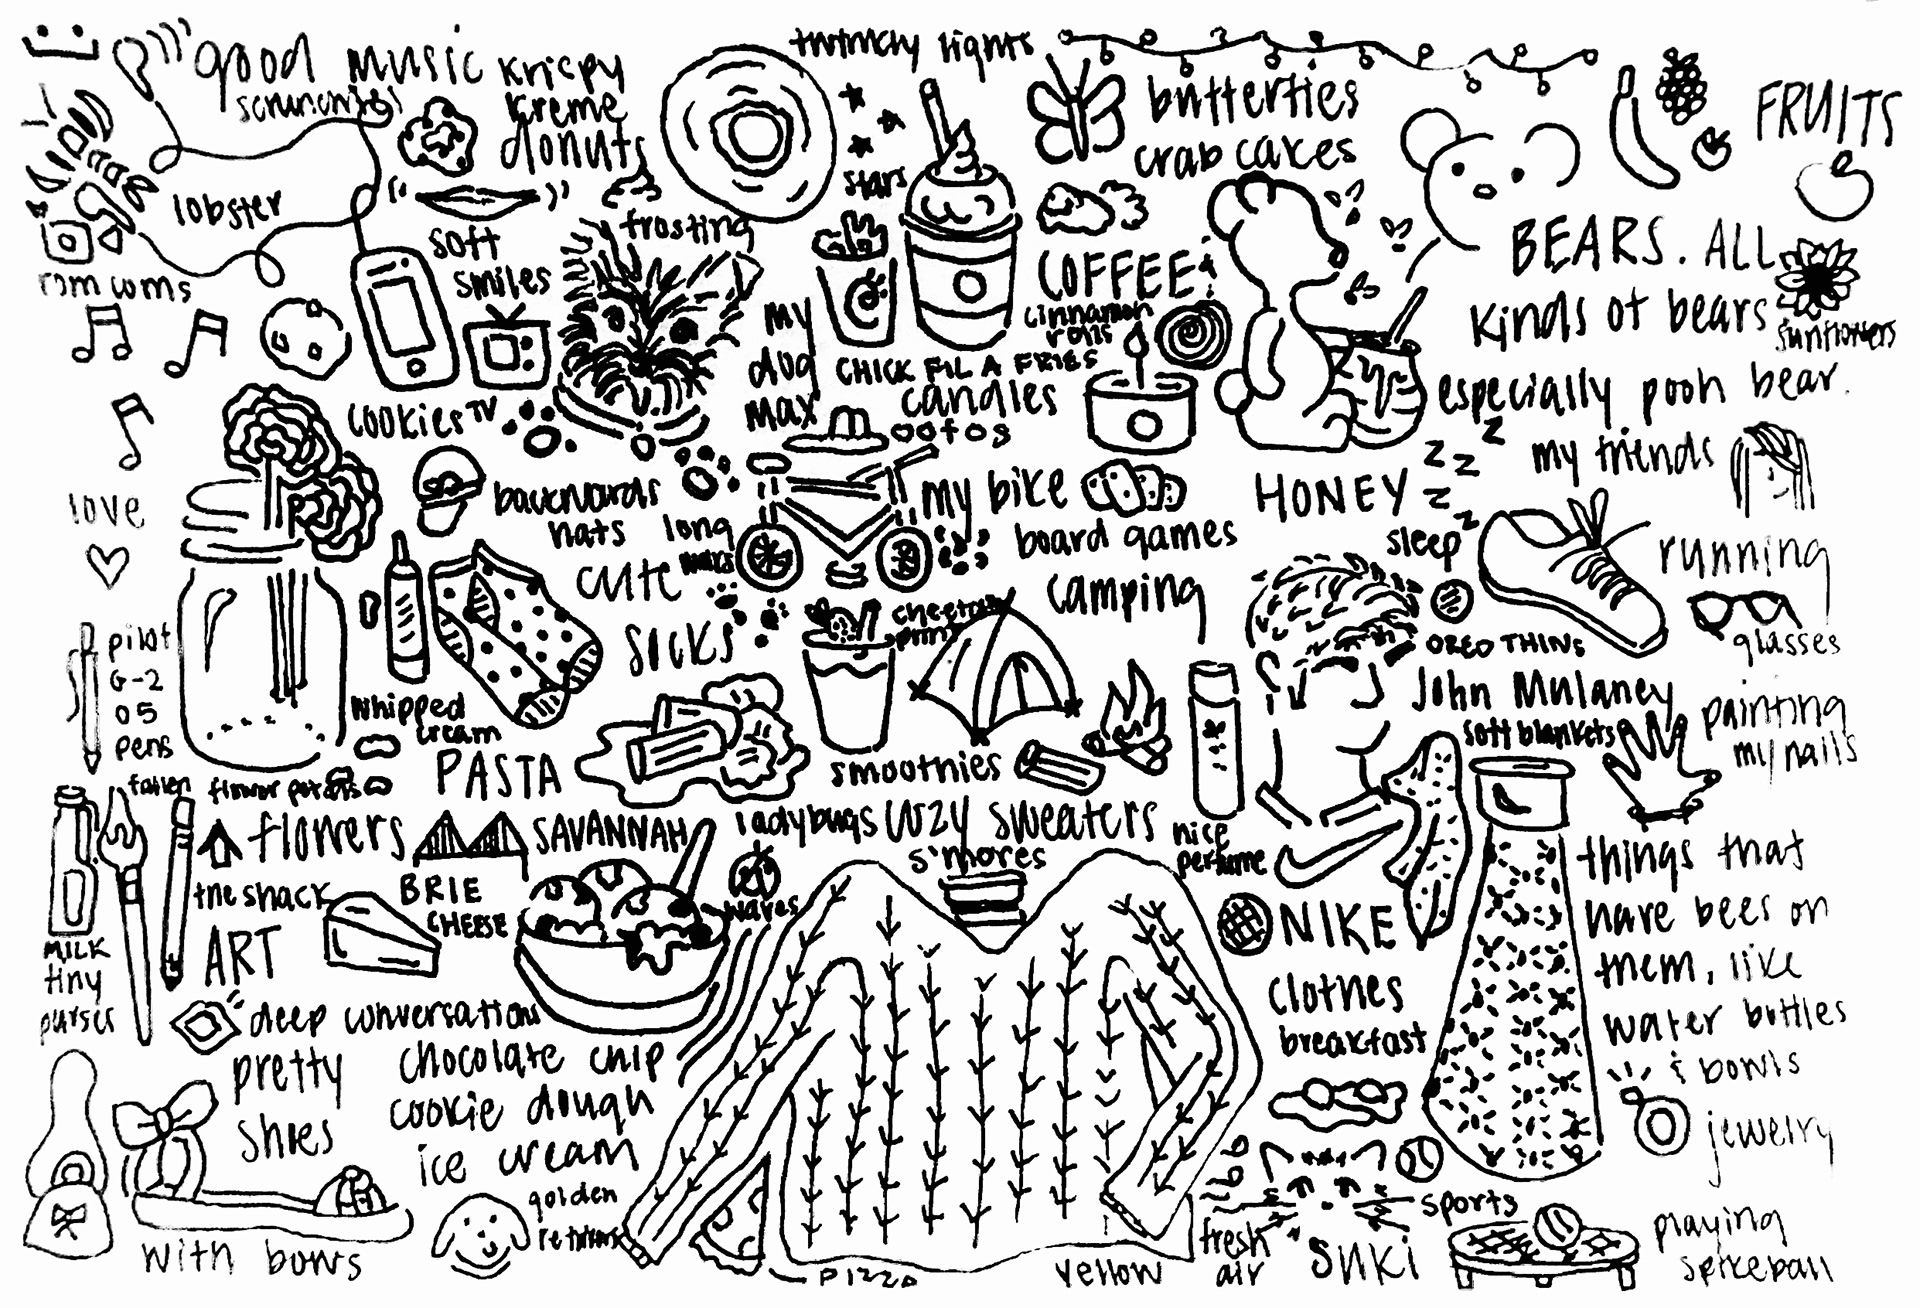 good music
scrunchies
Krispy
Kreme
donuts
twinkly lights
butterflies
crab cakes
FRUITS
lobster
stars
soft
smiles
frosting
rom coms
COFFEE
cinnamon
rolls
BEARS. ALL
kinds of bears
especially pooh bear.
sunflowers
my
dog
max
CHICK FIL A FRIES
candles
cookies
TV
oofos
my friends
love
backwards
hats
long
cute
socks
my bike
board games
HONEY
z z z z z
sleep
running
camping
cheetah
print
glasses
OREO THINS
pilot
G-2
05
pens
whipped
cream
John Mulaney
soft blankets
painting
my nails
PASTA
smoothies
fallen
flower petals
flowers
SAVANNAH
ladybugs
cozy sweaters
s'mores
nice
perfume
things that
have bees on
them, like
water bottles
& bowls
the shack
BRIE
CHEESE
waves
NIKE
clothes
MILK
tiny
purses
ART
deep conversations
breakfast
pretty
shoes
with bows
chocolate chip
cookie dough
ice cream
jewelry
golden
retrievers
pizza
yellow
fresh
air
SUKI
sports
playing
spikeball